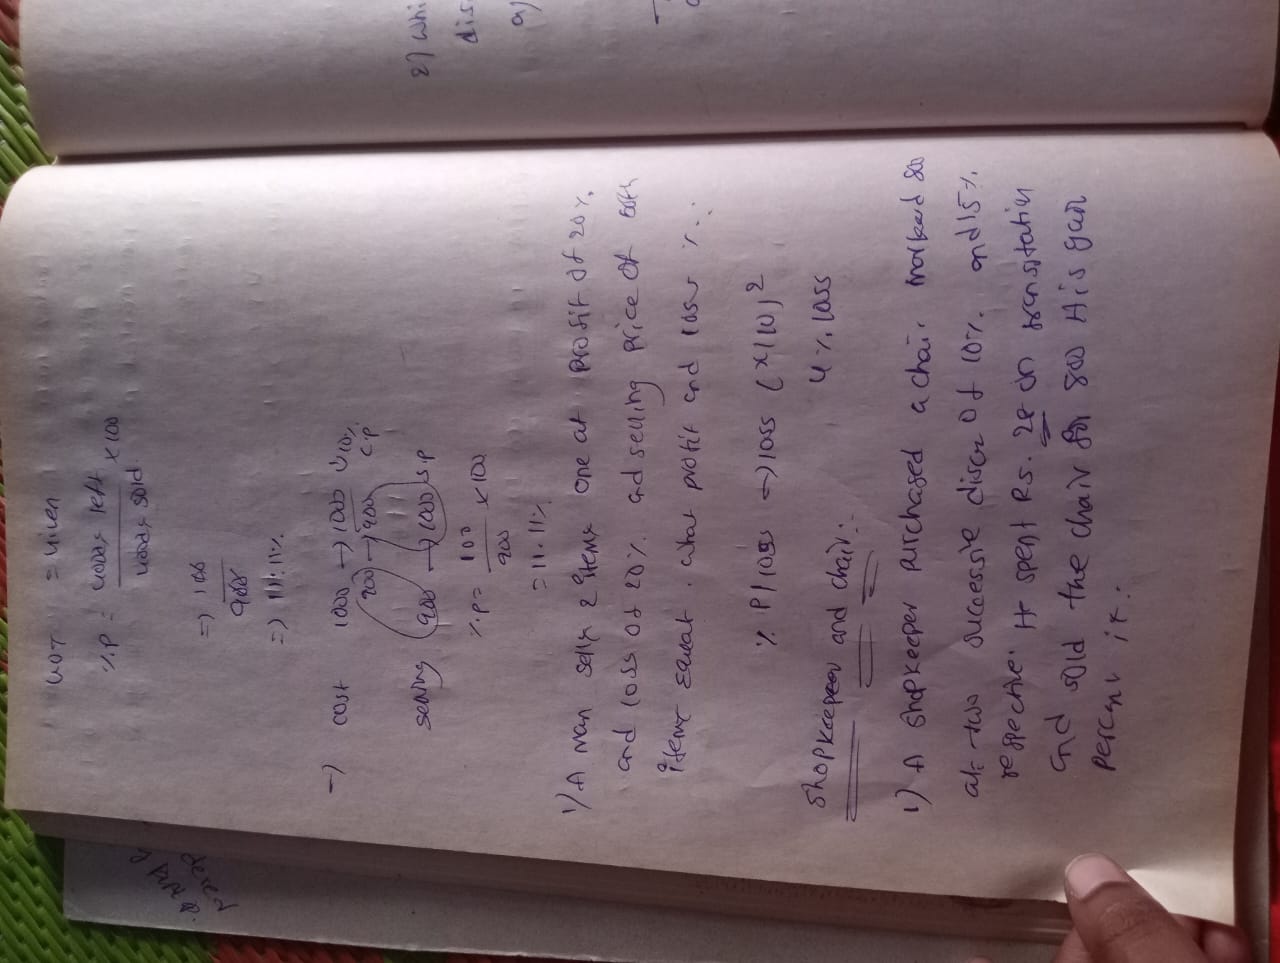 %.P = left × 100
sold
=) 100
900
=) 11.11%
→) cost 1000 → 1000 10%
900 → 900 C.P
selling 900 → 1000 S.P
%.P = 100 × 100
900
= 11.11%
1) A man sells 2 items one at profit of 20%.
and loss of 20% and selling price of both
items . what profit and loss %.
% P/loss → loss (x/10)²
4% loss
Shopkeeper and chair:-
1) A shopkeeper purchased a chair marked 800
at two successie of 10% and 15%
respective. spent Rs. 28 on
and sold the chair for 800 His gain
percent is:
2) whi
dis
a)